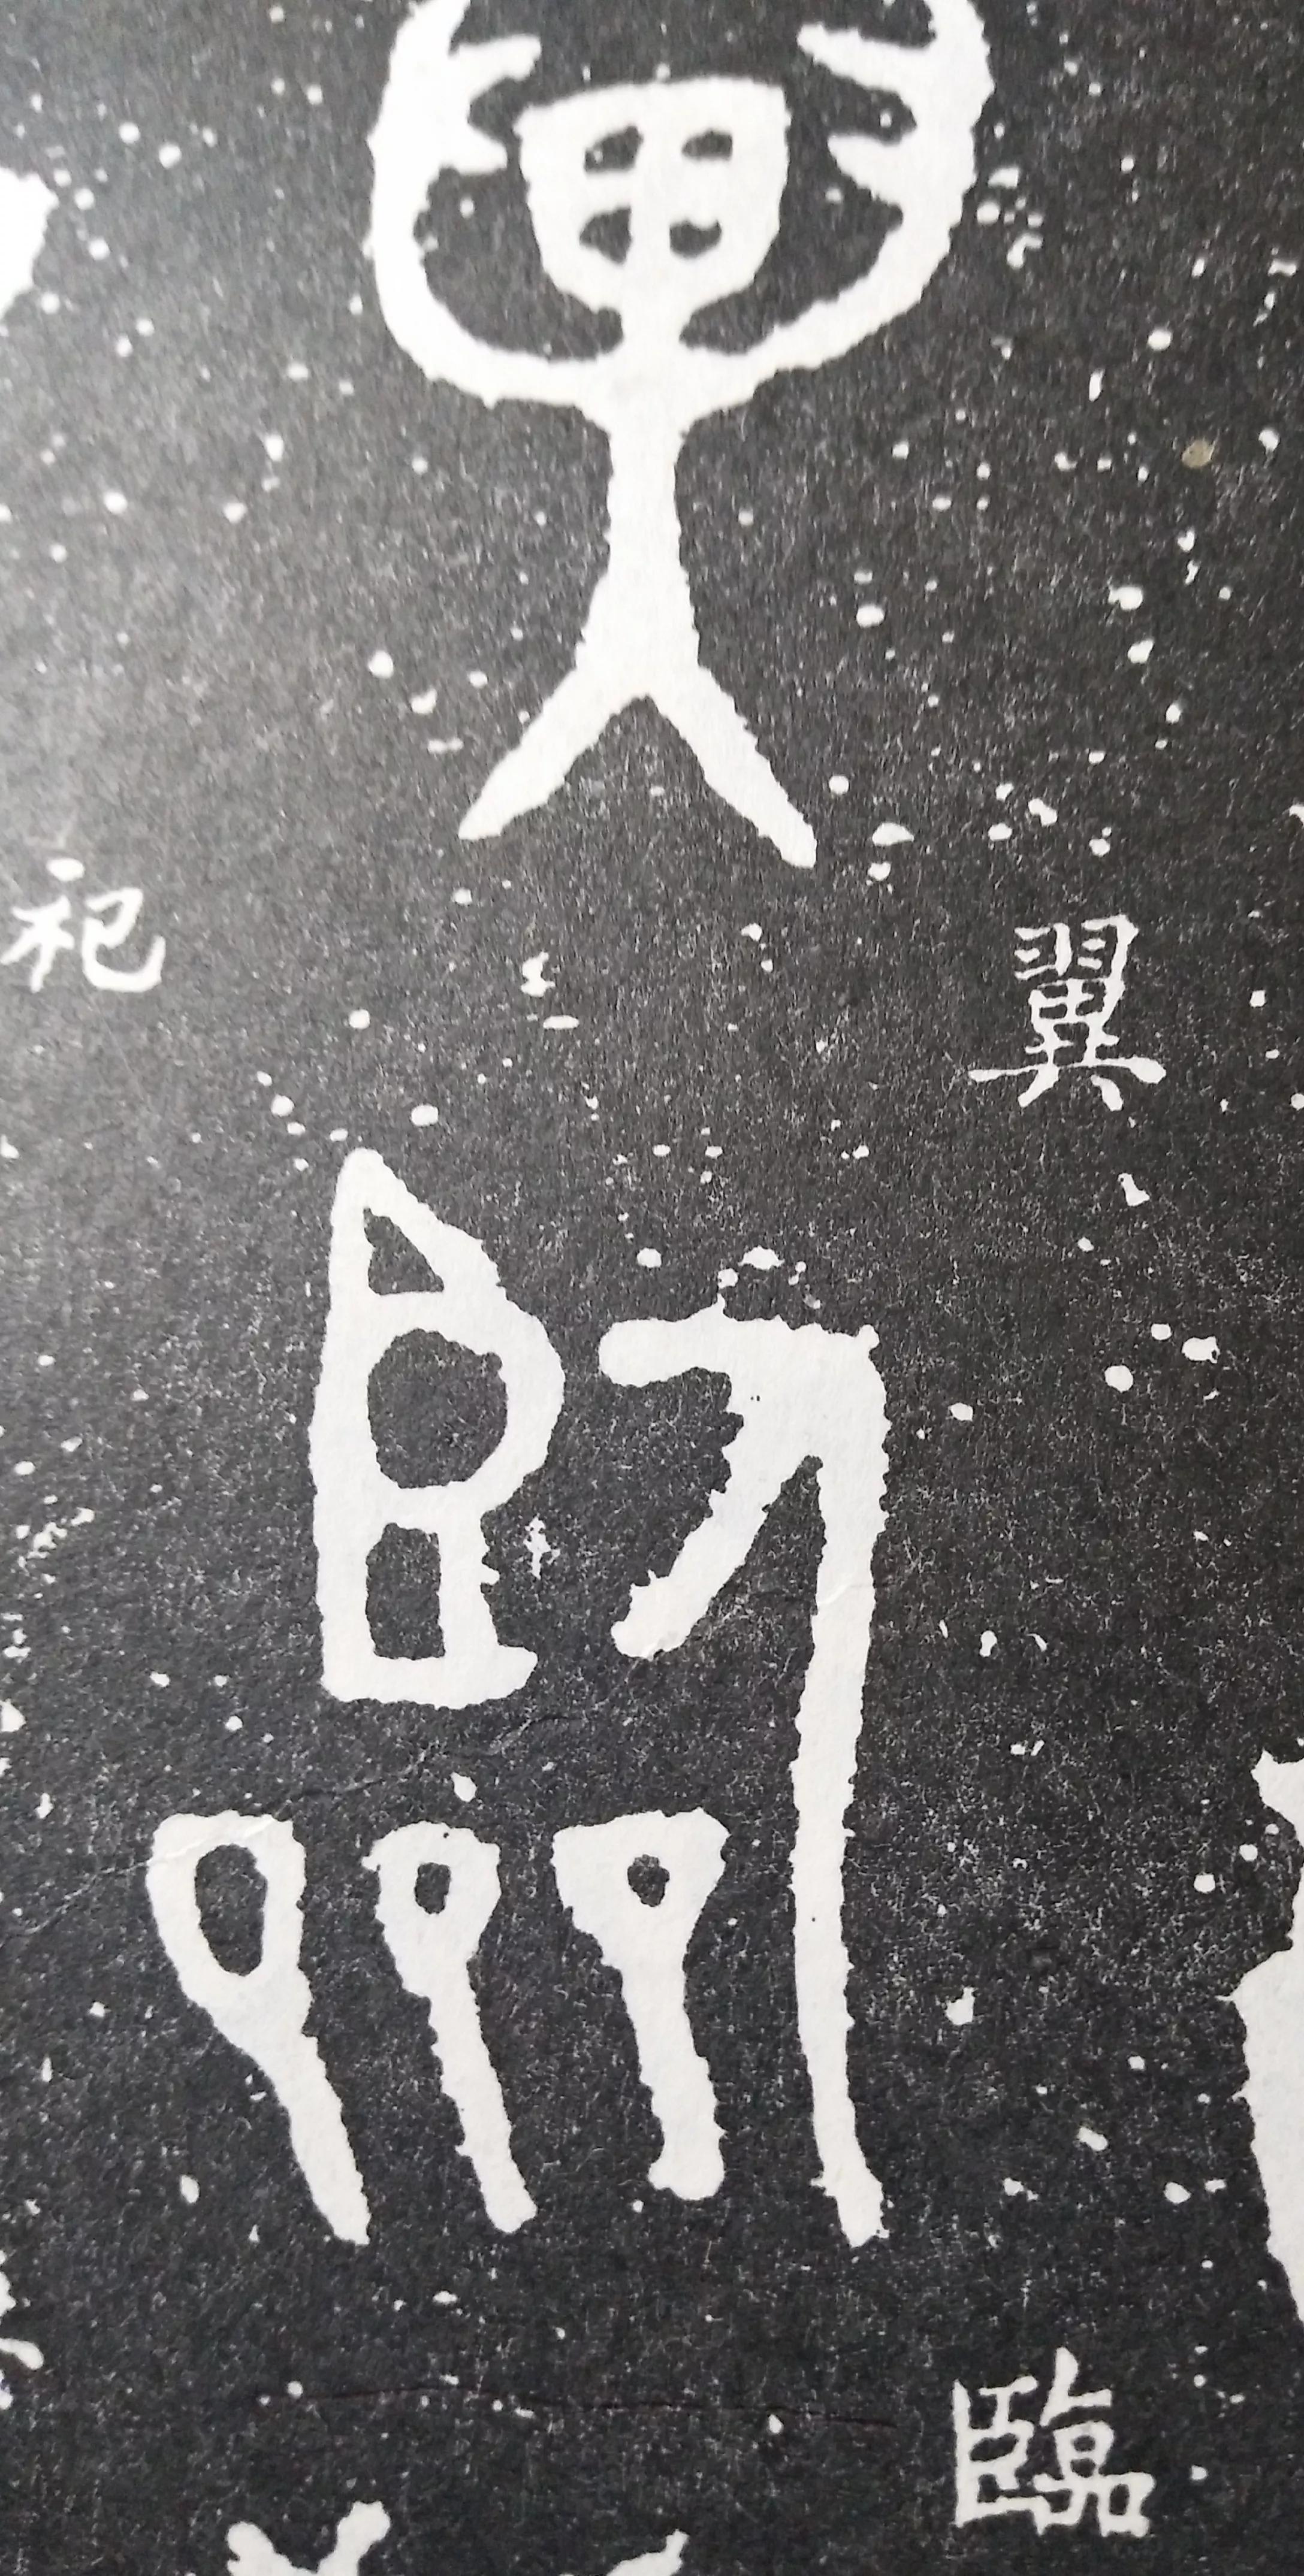 翼
臨
祀